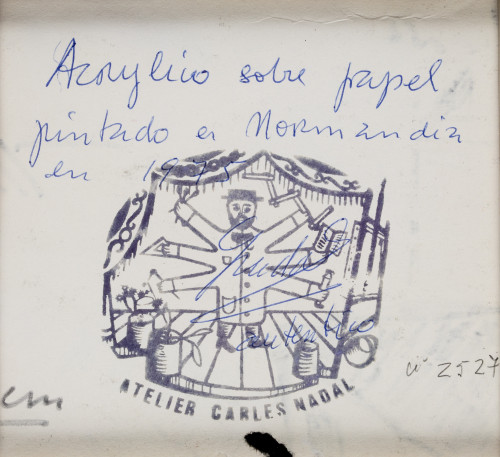 Acrylico sobre papel
pintado en Normandia
en 1975
autentico
nº 2527
ATELIER CARLES NADAL
cm